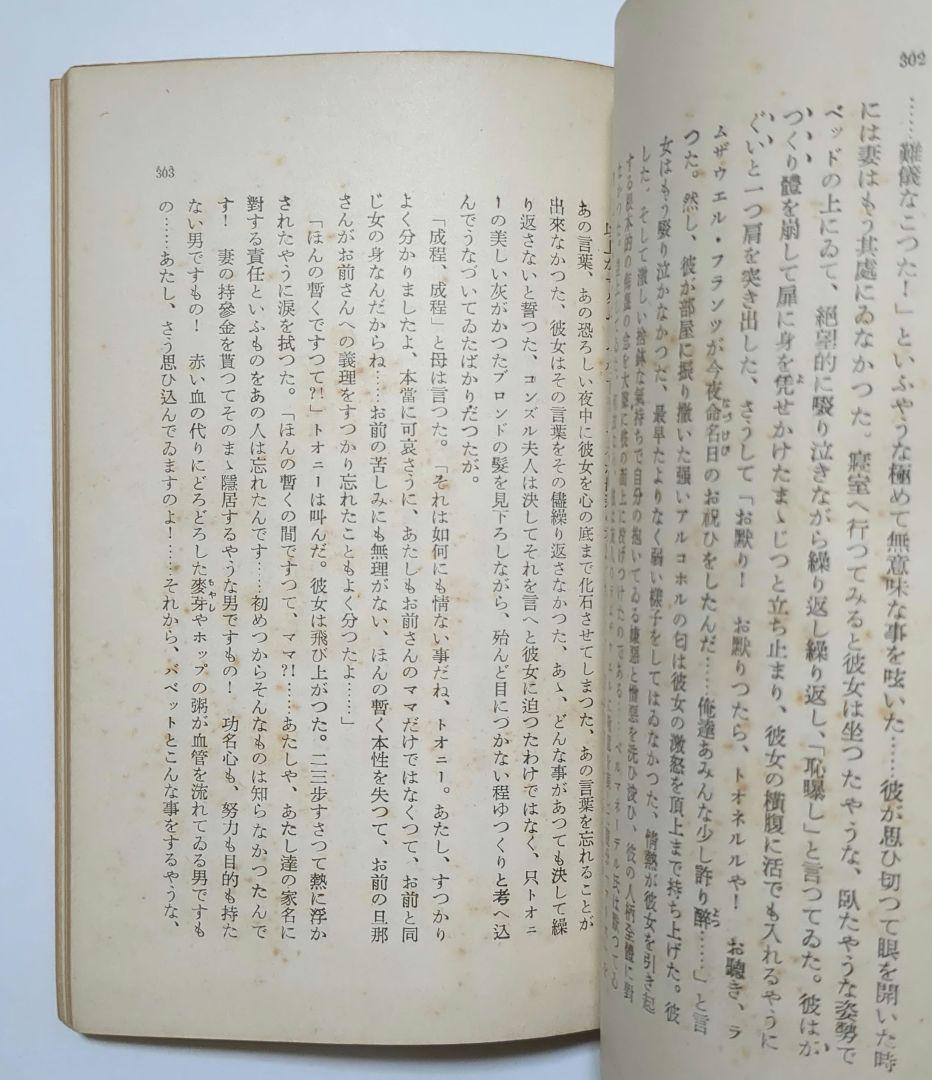 302
……難儀なこつた!」といふやうな極めて無意味な事を呟いた……彼が思ひ切つて眼を開いた時
には妻はもう其處にゐなかつた。寢室へ行つてみると彼女は坐つたやうな、臥たやうな姿勢で
ベッドの上にゐて、絕望的に啜り泣きながら繰り返し繰り返し、「恥曝し」と言つてゐた。彼はが
つくり體を崩して扉に身を凭せかけたまゝじつと立ち止まり、彼女の橫腹に活でも入れるやうに
ぐいと一つ肩を突き出した、さうして「お默り! お默りつたら、トオネルルや! お聽き、ラ
ムザウエル・フランツが今夜命名日のお祝ひをしたんだ……俺達あみんな少し許り醉……」と言
つた。然し、彼が部屋に振り撒いた强いアルコホルの匂は彼女の激怒を頂上まで持ち上げた。彼
女はもう啜り泣かなかつた、最早たよりなく弱い樣子をしてはゐなかつた、情熱が彼女を引き起
した。そして激しい捨鉢な氣持ちで自分の抱いてゐる嫌惡と憎惡を洗ひ浚ひ、彼の人柄全體に對
する根本的の
303
あの言葉、あの恐ろしい夜中に彼女を心の底まで化石させてしまつた、あの言葉を忘れることが
出來なかつた、彼女はその言葉をその儘繰り返さなかつた、あゝ、どんな事があつても決して繰
り返さないと誓つた、コンズル夫人は決してそれを言へと彼女に迫つたわけではなく、只トオニ
ーの美しい灰がかつたブロンドの髮を見下ろしながら、殆んど目につかない程ゆつくりと考へ込
んでうなづいてゐたばかりだつたが。
「成程、成程」と母は言つた。「それは如何にも情ない事だね、トオニー。あたし、すつかり
よく分かりましたよ、本當に可哀さうに、あたしもお前さんのママだけではなくつて、お前と同
じ女の身なんだからね……お前の苦しみにも無理がない、ほんの暫く本性を失つて、お前の旦那
さんがお前さんへの義理をすつかり忘れたこともよく分つたよ……」
「ほんの暫くですつて?!」トオニーは叫んだ。彼女は飛び上がつた。二三步すさつて熱に浮か
されたやうに淚を拭つた。「ほんの暫くの間ですつて、ママ?!……あたしや、あたし達の家名に
對する責任といふものをあの人は忘れたんです……初めつからそんなものは知らなかつたんで
す! 妻の持參金を貰つてそのまゝ隱居するやうな男ですもの! 功名心も、努力も目的も持た
ない男ですもの! 赤い血の代りにどろどろした麥芽やホップの粥が血管を流れてゐる男ですも
の……あたし、さう思ひ込んでゐますのよ!……それから、バベットとこんな事をするやうな、